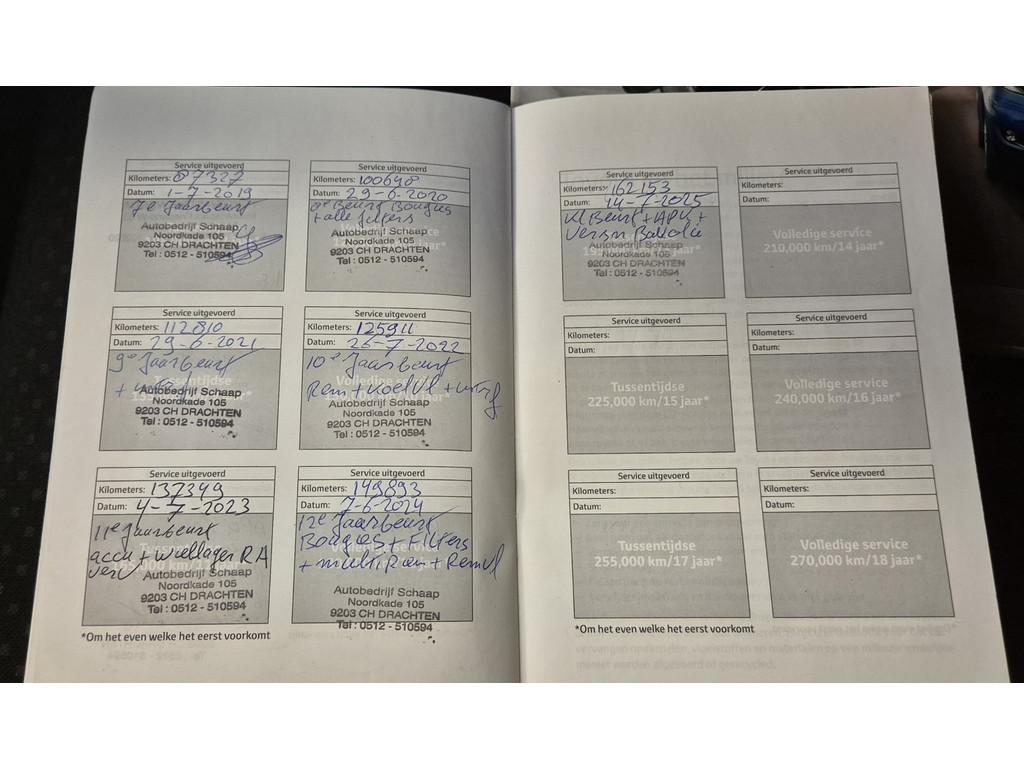 Service uitgevoerd
Kilometers: 87327
Datum: 1-7-2019
7e Jaarbeurt
Autobedrijf Schaap
Noordkade 105
9203 CH DRACHTEN
Tel : 0512 - 510594
Service uitgevoerd
Kilometers: 100648
Datum: 29-6-2020
8e Beurt Bougies
+ alle filters
Autobedrijf Schaap
Noordkade 105
9203 CH DRACHTEN
Tel : 0512 - 510594
Service uitgevoerd
Kilometers: 112810
Datum: 29-6-2021
9e Jaarbeurt
Tussentijdse
Autobedrijf Schaap
Noordkade 105
9203 CH DRACHTEN
Tel : 0512 - 510594
Service uitgevoerd
Kilometers: 125911
Datum: 25-7-2022
10e Jaarbeurt
Rem + Koelvl +
Autobedrijf Schaap
Noordkade 105
9203 CH DRACHTEN
Tel : 0512 - 510594
Service uitgevoerd
Kilometers: 137349
Datum: 4-7-2023
11e Jaarbeurt
accu + wiellager RA
Autobedrijf Schaap
Noordkade 105
9203 CH DRACHTEN
Tel : 0512 - 510594
Service uitgevoerd
Kilometers: 149893
Datum: 7-6-2024
12e Jaarbeurt
Bougies + Filters
+ multiriem + Remvl
Autobedrijf Schaap
Noordkade 105
9203 CH DRACHTEN
Tel : 0512 - 510594
*Om het even welke het eerst voorkomt
Service uitgevoerd
Kilometers: 162153
Datum: 14-7-2025
Kl Beurt + APK +
Autobedrijf Schaap
Noordkade 105
9203 CH DRACHTEN
Tel : 0512 - 510594
Service uitgevoerd
Kilometers:
Datum:
Volledige service
210,000 km/14 jaar*
Service uitgevoerd
Kilometers:
Datum:
Tussentijdse
225,000 km/15 jaar*
Service uitgevoerd
Kilometers:
Datum:
Volledige service
240,000 km/16 jaar*
Service uitgevoerd
Kilometers:
Datum:
Tussentijdse
255,000 km/17 jaar*
Service uitgevoerd
Kilometers:
Datum:
Volledige service
270,000 km/18 jaar*
*Om het even welke het eerst voorkomt